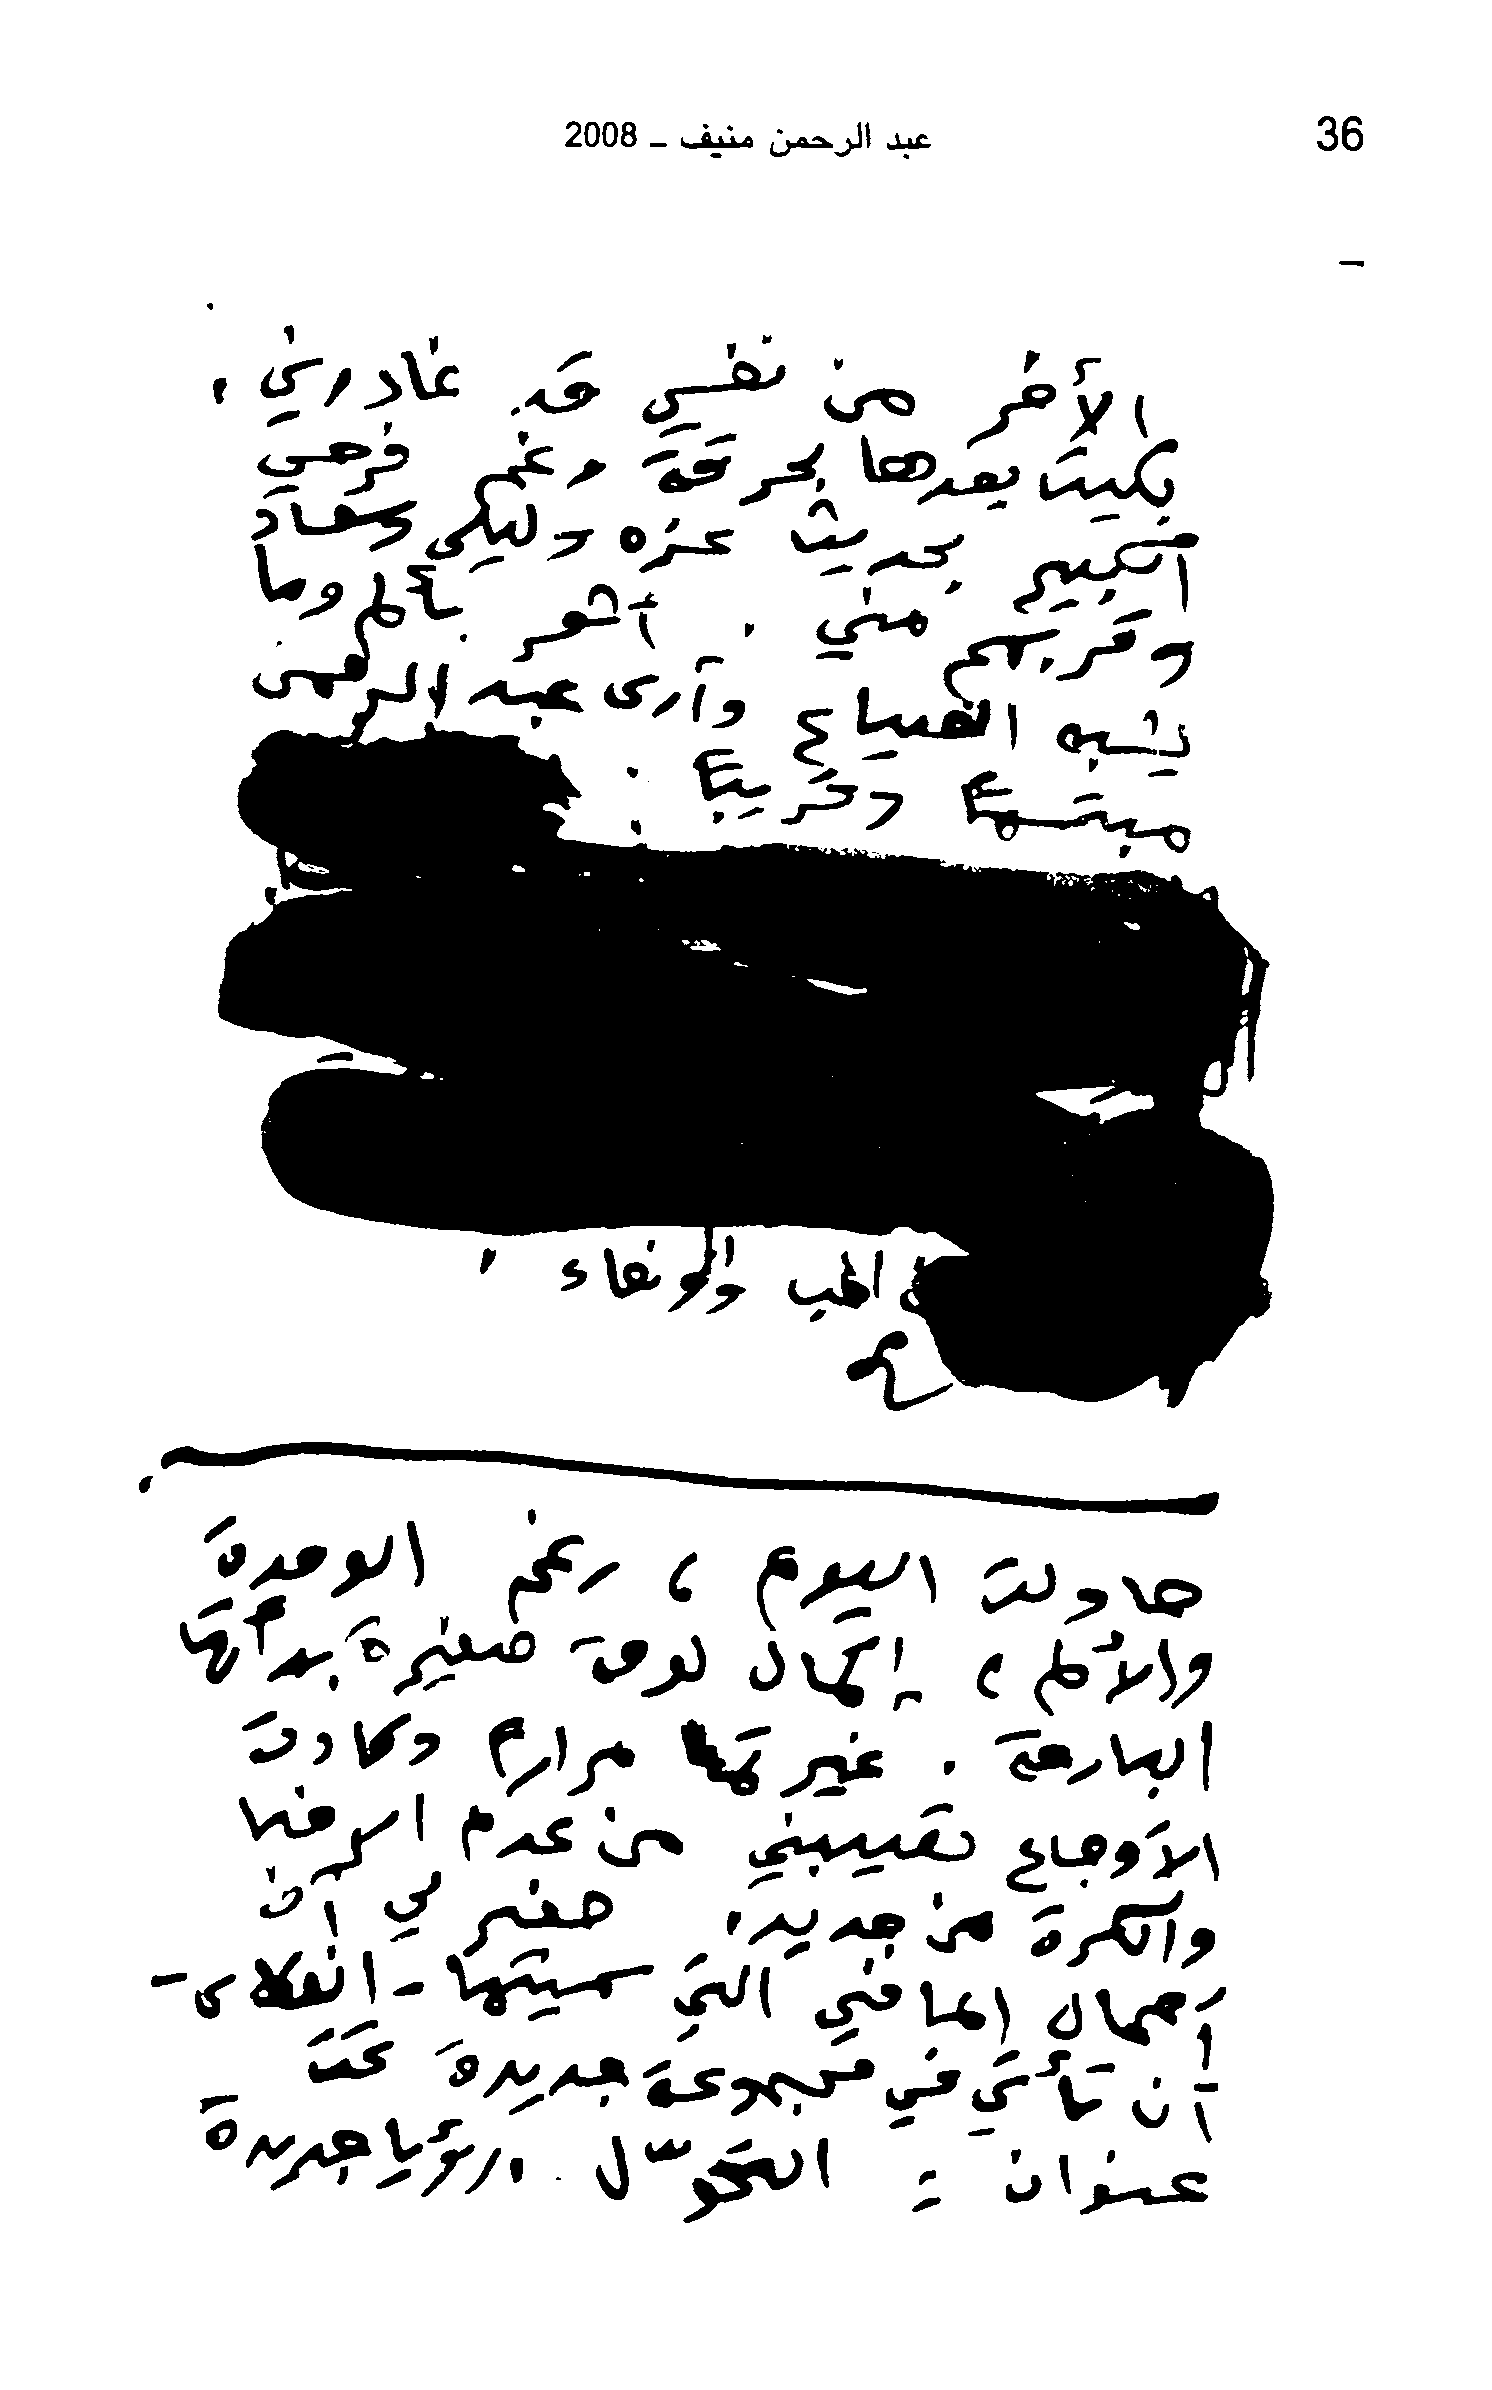 36
عبد الرحمن منيف – 2008
الأخر من نفسي قد غادرني .
بكيت بعدها بحرقة رغم فرحي
الكبير بحديث عزه وليلى وسعاد
وقربهم مني . أشعر بألم وما
يشبه الضياع وأرى عبد الرحمن
مبتسمًا وقريبًا .
الحب والوفاء .
حاولت اليوم ، رغم الوحدة
والألم ، إكمال لوحة صغيرة بدأتها
البارحة . غيرتها مرارًا وكادت
الأوجاع تصيبني من عدم الرضا
والكرة من جديد . خطر لي أن
أعمال الماضي التي سميتها -
أن تأتي في مجموعة جديدة تحت
عنوان : التحوّل . رؤيا جديدة